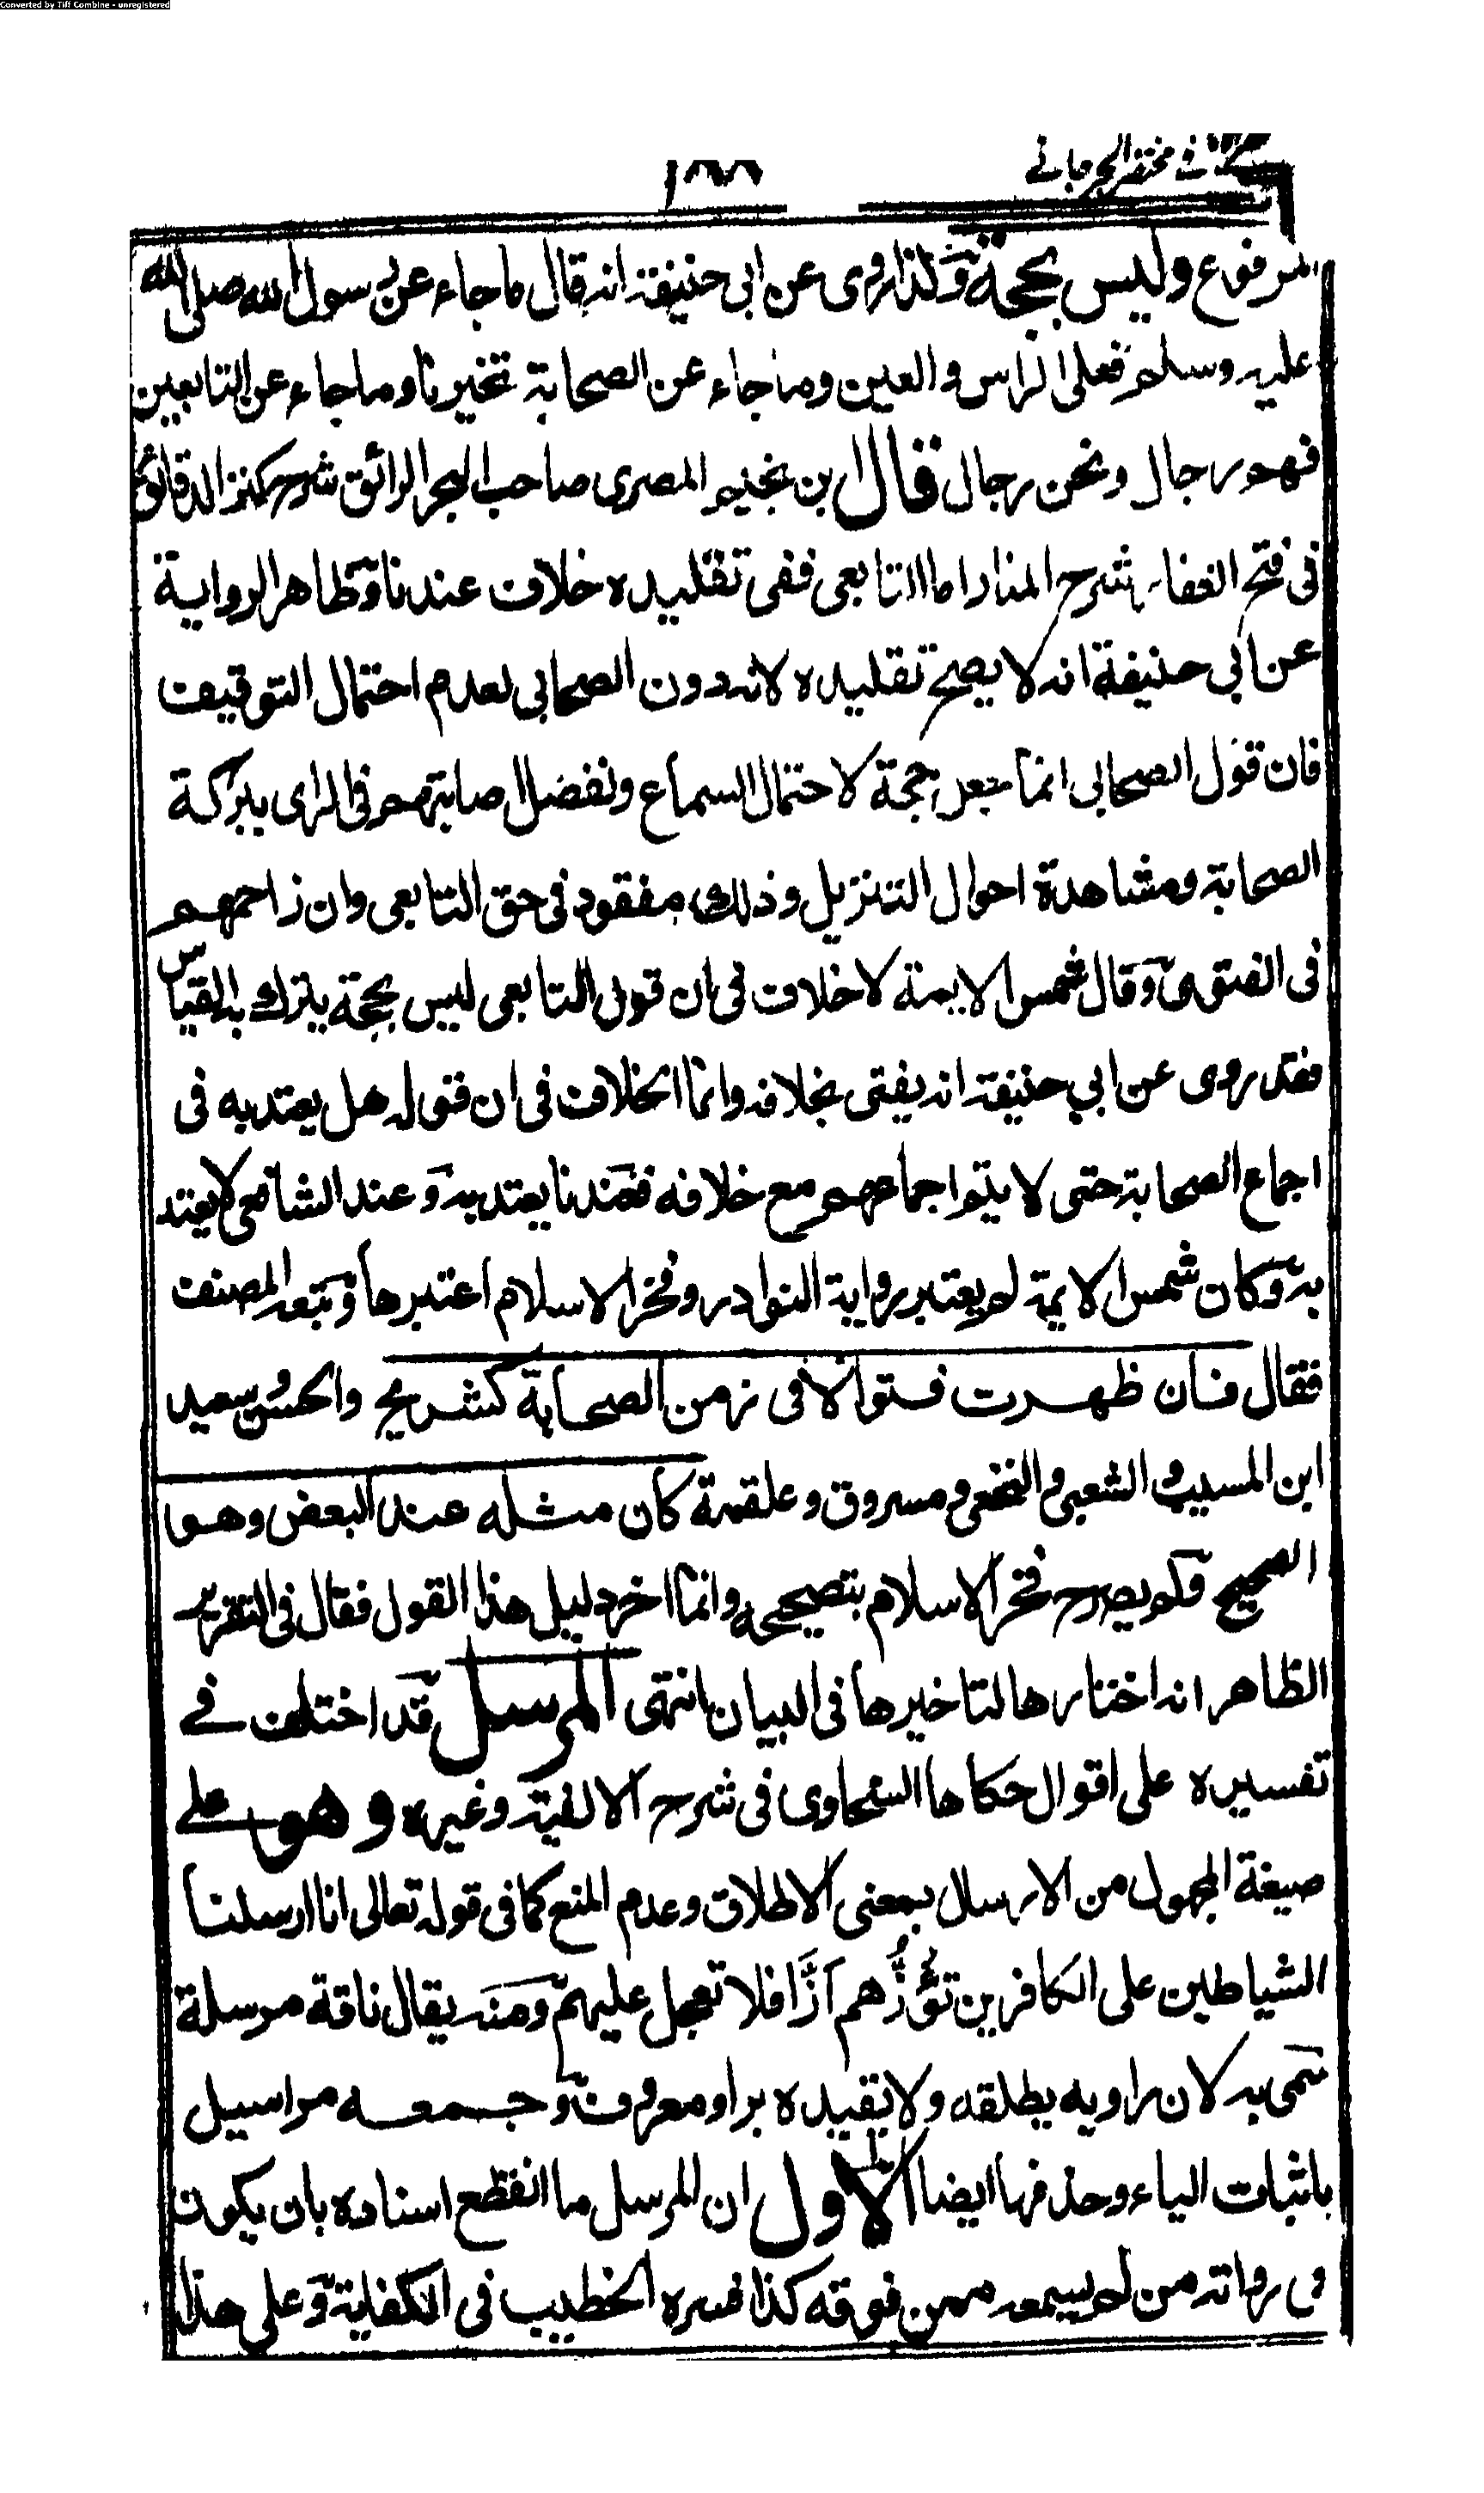 Converted by Tiff Combine - unregistered
في مختصر الجرجاني
١٨٨
مرفوع وليس بحجة وكذا روى عن ابى حنيفة انه قال ما جاء عن رسول الله صلى الله
عليه وسلم فعلى الراس والعين وما جاء عن الصحابة تخيرنا وما جاء عن التابعين
فهم رجال ونحن رجال قال ابن نجيم المصرى صاحب البحر الرائق شرح كنز الدقائق
فى فتح الغفار شرح المنار اما التابعى ففى تقليده خلاف عندنا وظاهر الرواية
عن ابي حنيفة انه لا يصح تقليده لانه دون الصحابي لعدم احتمال التوقيف
فان قول الصحابي انما جعل حجة لاحتمال السماع ولفضل اصابتهم فى الراى ببركة
الصحابة ومشاهدة احوال التنزيل وذلك مفقود فى حق التابعى وان زاحمهم
فى الفتوى وقال شمس الايمة لا خلاف فى ان قول التابعى ليس بحجة يترك به القياس
فقد روى عن ابي حنيفة انه يفتى بخلافه وانما الخلاف فى ان قوله هل يعتد به فى
اجماع الصحابة حتى لا يتم اجماعهم مع خلافه فعندنا يعتد به وعند الشافعى لا يعتد
به وكان شمس الايمة لم يعتبر رواية النوادر وفخر الاسلام اعتبرها وتبعه المصنف
فقال فان ظهرت فتواه فى زمن الصحابة كشريح والحسن وسعيد
ابن المسيب والشعبى والنخعى ومسروق وعلقمة كان مثله عند البعض وهو
الصحيح ولم يصرح فخر الاسلام بتصحيحه وانما اخر دليل هذا القول فقال فى التقرير
الظاهر انه اختارها لتاخيرها فى البيان انتهى المرسل قد اختلف في
تفسيره على اقوال حكاها السخاوى فى شرح الالفية وغيره وهو على
صيغة المجهول من الارسال بمعنى الاطلاق وعدم المنع كما فى قوله تعالى انا ارسلنا
الشياطين على الكافرين تؤُزُّهم اَزًّا فلا تعجل عليهم ومنه يقال ناقة مرسلة
سمى به لان راويه يطلقه ولا يقيده براو معروف وجمعه مراسيل
باثبات الياء وحذفها ايضا الاول ان المرسل ما انقطع اسناده بان يكون
فى رواته من لم يسمعه ممن فوقه كذا فسره الخطيب فى الكفاية وعلى هذا